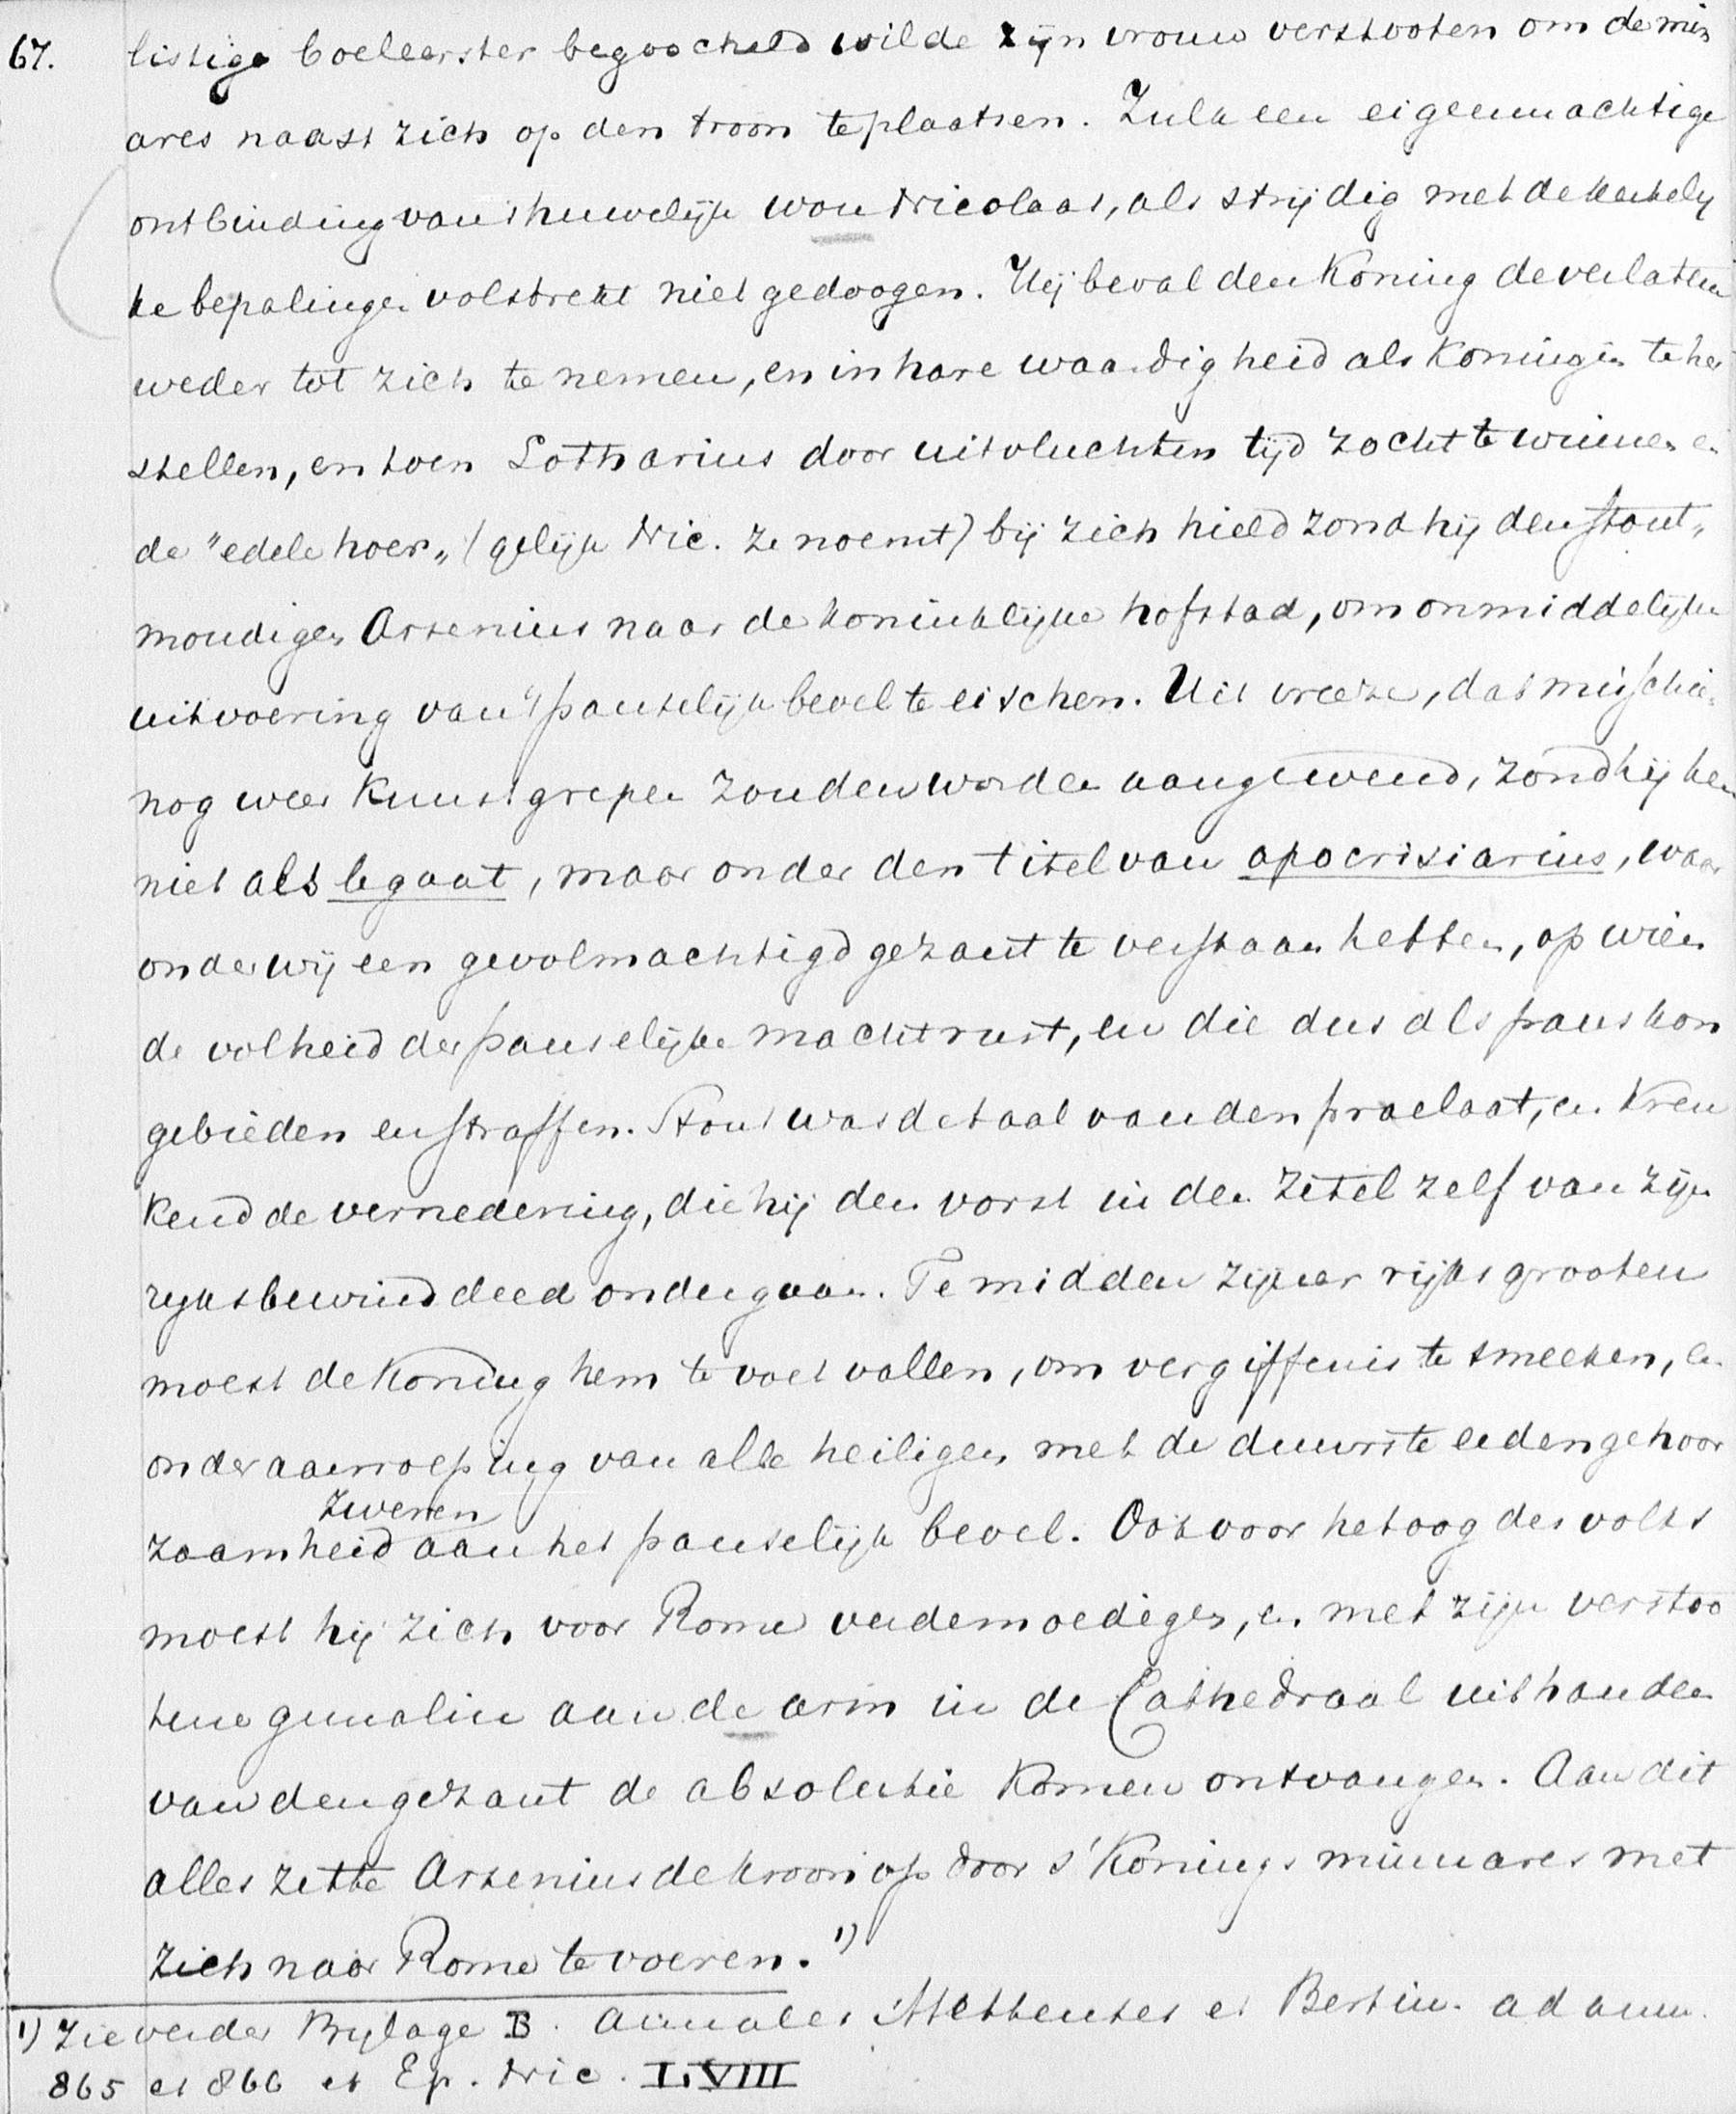 67. listige boeleerster begoocheld wilde zijn vrouw verstooten om de min
ares naast zich op den troon te plaatsen. Zulk een eigenmachtige
ontbinding van 't huwelijk wou Nicolaas, als strijdig met de kerkelij
ke bepalingen volstrekt niet gedoogen. Hij beval den Koning de verlatene
weder tot zich te nemen, en in hare waardigheid als Koningin te her
stellen, en toen Lotharius door uitvluchten tijd zocht te winnen en
de "edele hoer„ (gelijk Nic. ze noemt) bij zich hield zond hij den stout„
moedigen Arsenius naar de koninklijke hofstad, om onmiddelijke
uitvoering van 't pauselijk bevel te eischen. Uit vreeze, dat misschien
nog weer Kunstgrepen zouden worden aangewend, zond hij hem
niet als legaat, maar onder den titel van apocrisiarius, waar
onder wij een gevolmachtigd gezant te verstaan hebben, op wien
de volheid der pauselijke macht rust, en die dus als paus kon
gebieden en straffen. Stout was de taal van den praelaat, en Kren
kend de vernedering, die hij den vorst in den zetel zelf van zijn
rijksbewind deed ondergaan. Te midden zijner rijksgrooten
moest de Koning hem te voet vallen, om vergiffenis te smeeken, en
onder aanroeping van alle heiligen met de duurste eeden gehoor
zweren
zaamheid aan het pauselijk bevel. Ook voor het oog des volks
moest hij zich voor Rome verdemoedigen, en met zijn verstoo
tene gemalin aan de arm in de Cathedraal uit handen
van den gezant de absolutie Komen ontvangen. Aan dit
alles zette Arsenius de kroon op door s' Konings minnares met
zich naar Rome te voeren. 1)
1) Zie verder Bijlage B. Annales Mettenses et Bertin. ad ann.
865 et 866 et Ep. Nic. LVIII